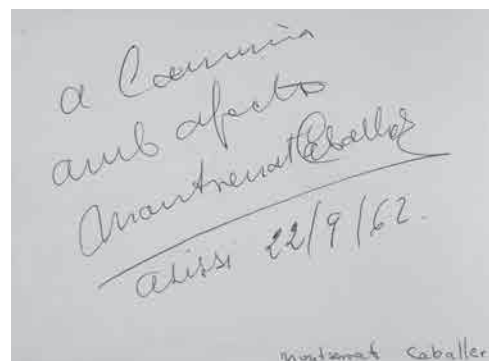 a Carmina
amb afecto
Montserrat Caballé
assisi 22/9/62.
Montserrat Caballe